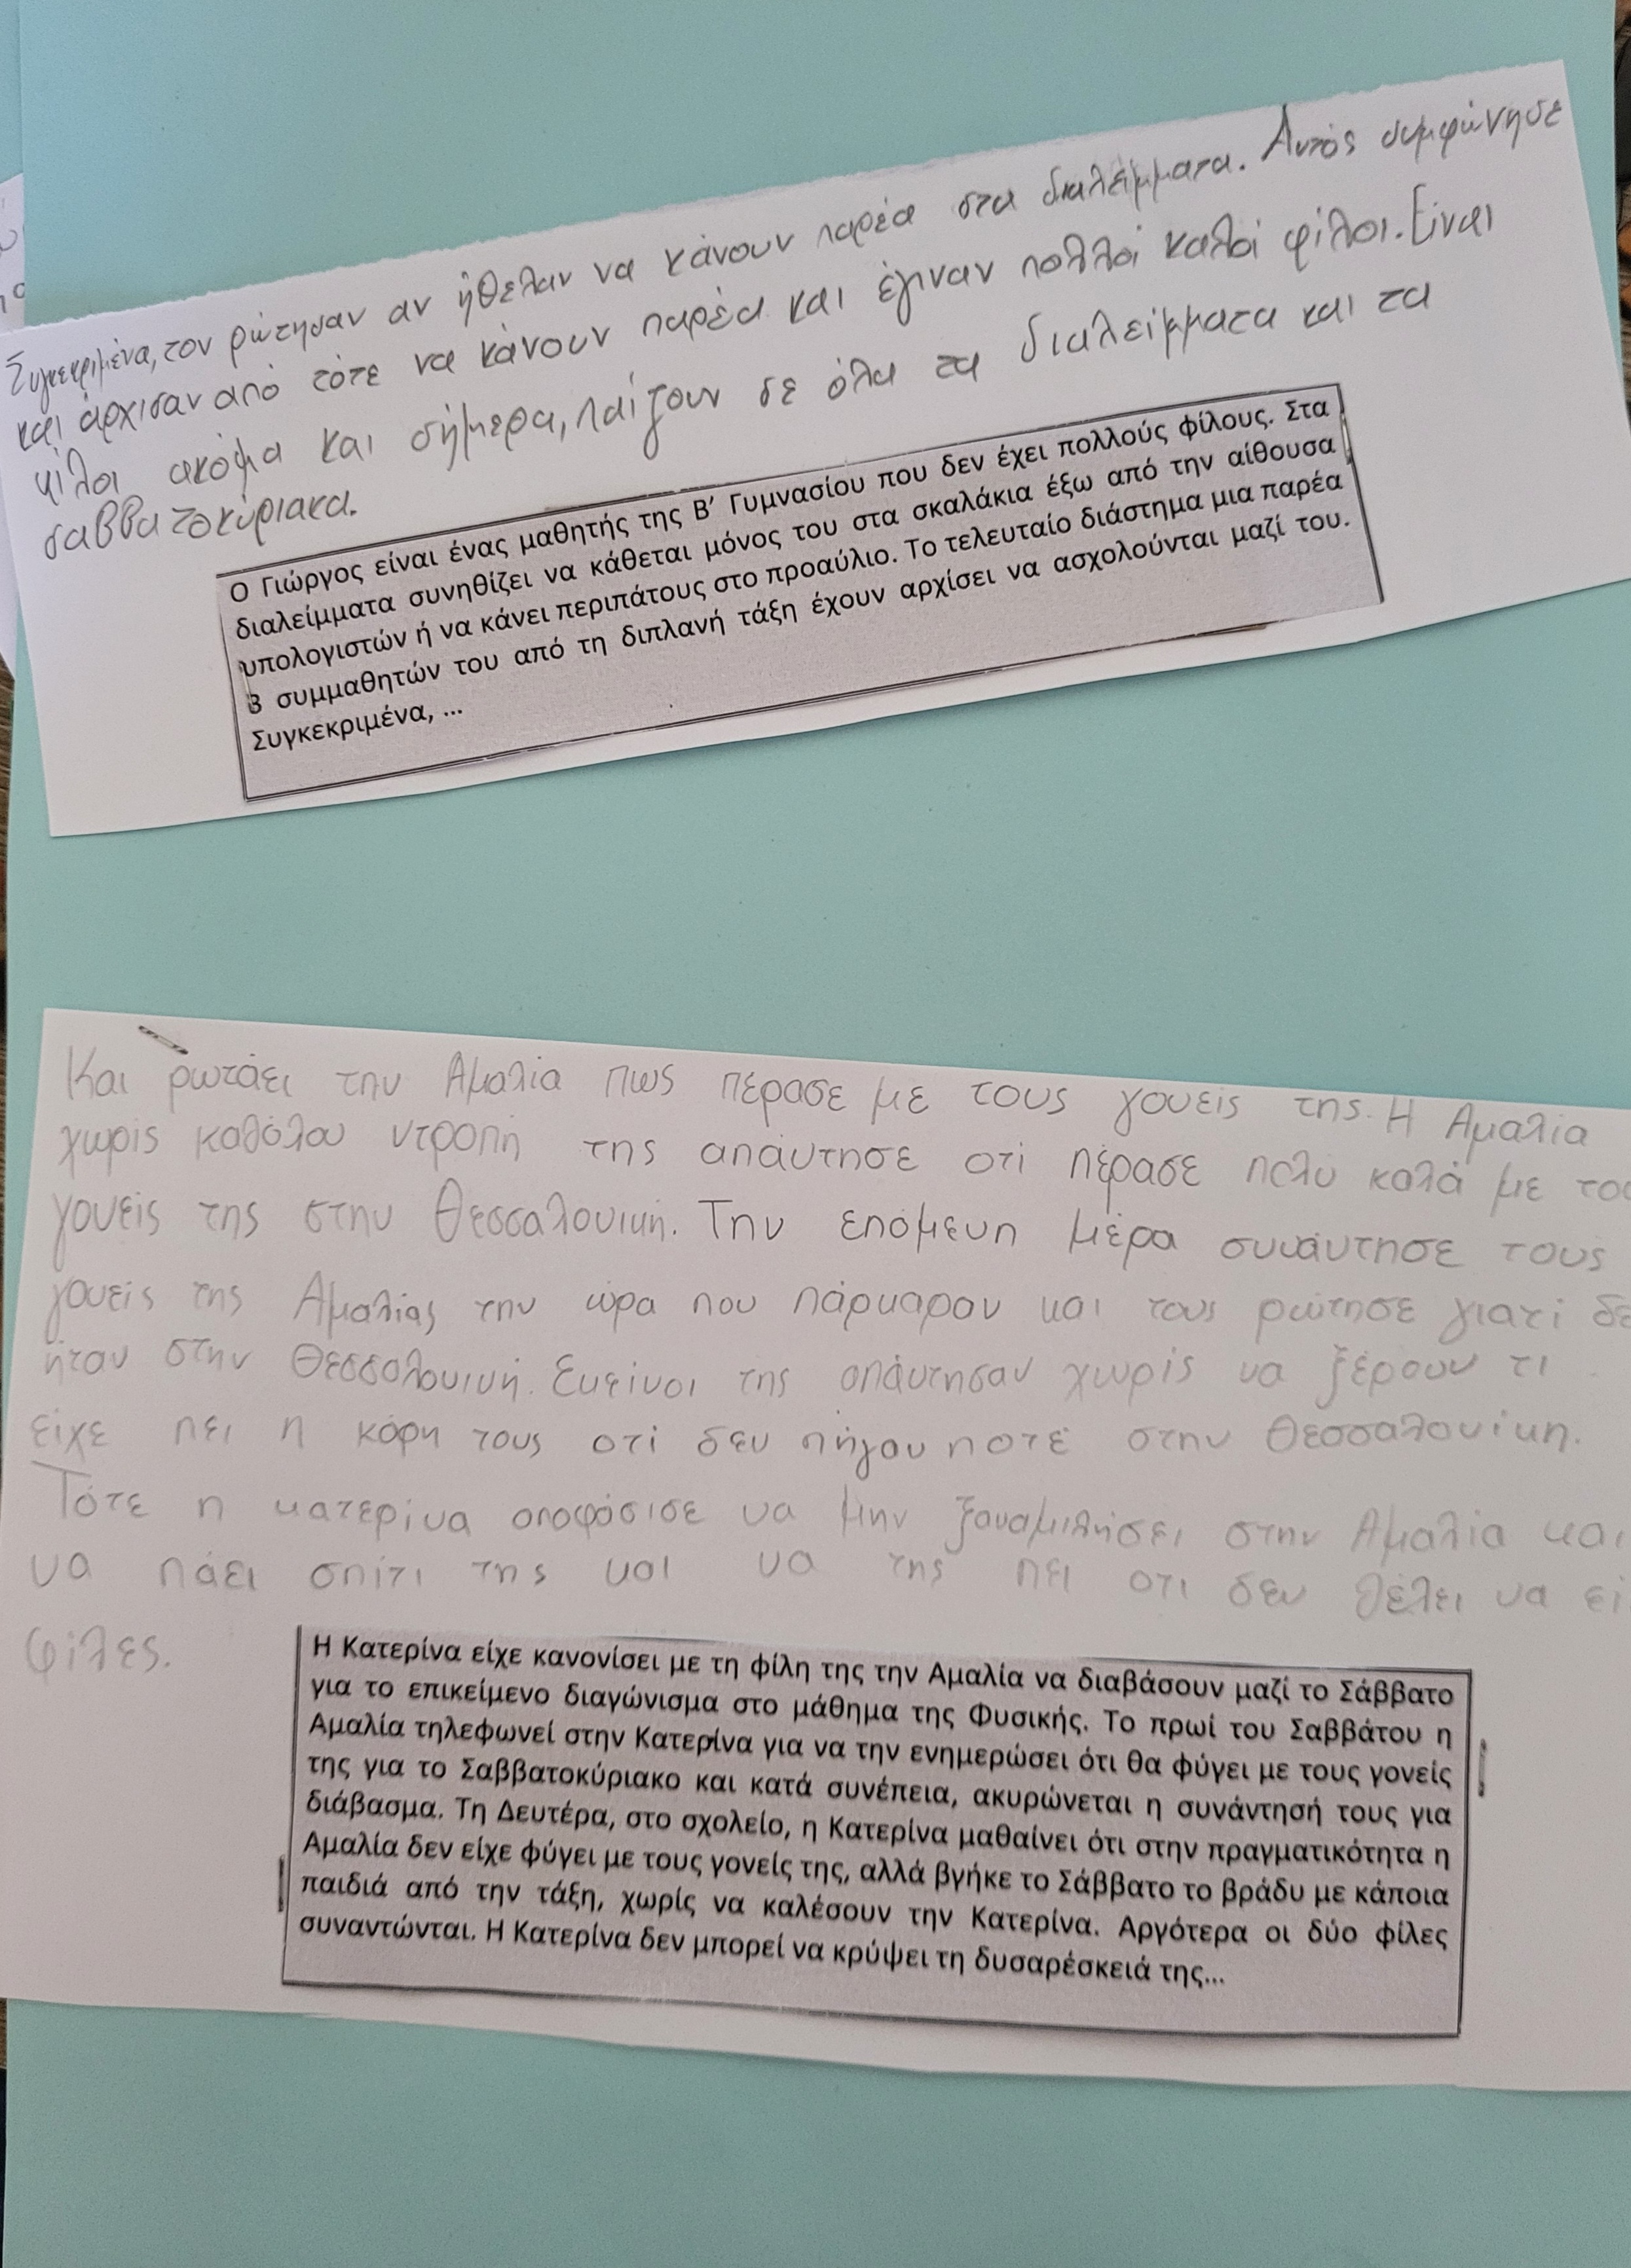 Συγκεκριμένα, τον ρώτησαν αν ήθελαν να κάνουν παρέα στα διαλείμματα. Αυτός συμφώνησε
και άρχισαν από τότε να κάνουν παρέα και έγιναν πολλοί καλοί φίλοι. Είναι
φίλοι ακόμα και σήμερα, παίζουν σε όλα τα διαλείμματα και τα
σαββατοκύριακα.
Ο Γιώργος είναι ένας μαθητής της Β’ Γυμνασίου που δεν έχει πολλούς φίλους. Στα
διαλείμματα συνηθίζει να κάθεται μόνος του στα σκαλάκια έξω από την αίθουσα
υπολογιστών ή να κάνει περιπάτους στο προαύλιο. Το τελευταίο διάστημα μια παρέα
3 συμμαθητών του από τη διπλανή τάξη έχουν αρχίσει να ασχολούνται μαζί του.
Συγκεκριμένα, ...
Και ρωτάει την Αμαλία πως πέρασε με τους γονείς της. Η Αμαλία
χωρίς καθόλου ντροπή της απάντησε οτί πέρασε πολύ καλά με του
γονείς της στην Θεσσαλονίκη. Την επόμενη μέρα συνάντησε τους
γονείς της Αμαλίας την ώρα που πάρκαραν και τους ρώτησε γιατί δε
ήταν στην Θεσσαλονίκη. Εκείνοι της απάντησαν χωρίς να ξέρουν τι
είχε πει η κόρη τους οτί δεν πήγαν ποτέ στην Θεσσαλονίκη.
Τότε η κατερίνα αποφάσισε να μην ξαναμιλήσει στην Αμαλία και
να πάει σπίτι της και να της πει οτι δεν θέλει να εί
φίλες.
Η Κατερίνα είχε κανονίσει με τη φίλη της την Αμαλία να διαβάσουν μαζί το Σάββατο
για το επικείμενο διαγώνισμα στο μάθημα της Φυσικής. Το πρωί του Σαββάτου η
Αμαλία τηλεφωνεί στην Κατερίνα για να την ενημερώσει ότι θα φύγει με τους γονείς
της για το Σαββατοκύριακο και κατά συνέπεια, ακυρώνεται η συνάντησή τους για
διάβασμα. Τη Δευτέρα, στο σχολείο, η Κατερίνα μαθαίνει ότι στην πραγματικότητα η
Αμαλία δεν είχε φύγει με τους γονείς της, αλλά βγήκε το Σάββατο το βράδυ με κάποια
παιδιά από την τάξη, χωρίς να καλέσουν την Κατερίνα. Αργότερα οι δύο φίλες
συναντώνται. Η Κατερίνα δεν μπορεί να κρύψει τη δυσαρέσκειά της...